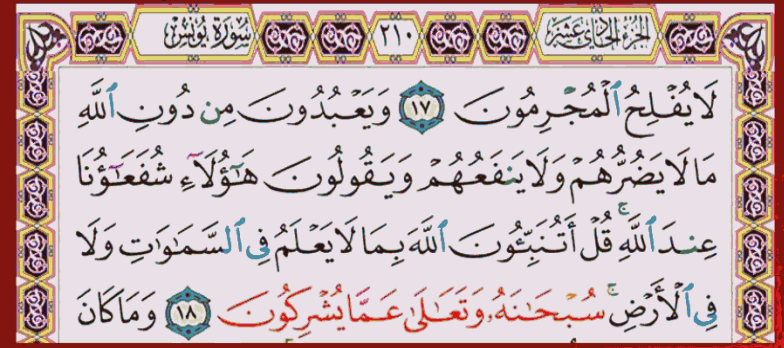 الجزء الحادي عشر ٢١٠ سورة يونس
لَا يُفْلِحُ ٱلْمُجْرِمُونَ ١٧ وَيَعْبُدُونَ مِن دُونِ ٱللَّهِ
مَا لَا يَضُرُّهُمْ وَلَا يَنفَعُهُمْ وَيَقُولُونَ هَٰٓؤُلَآءِ شُفَعَٰٓؤُنَا
عِندَ ٱللَّهِۚ قُلْ أَتُنَبِّـُٔونَ ٱللَّهَ بِمَا لَا يَعْلَمُ فِى ٱلسَّمَٰوَٰتِ وَلَا
فِى ٱلْأَرْضِۚ سُبْحَٰنَهُۥ وَتَعَٰلَىٰ عَمَّا يُشْرِكُونَ ١٨ وَمَا كَانَ